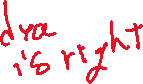 dya
is right